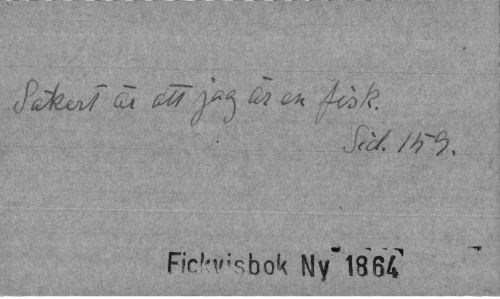 Säkert är att jag är en fisk.
Sid. 159.
Fickvisbok Ny 1864